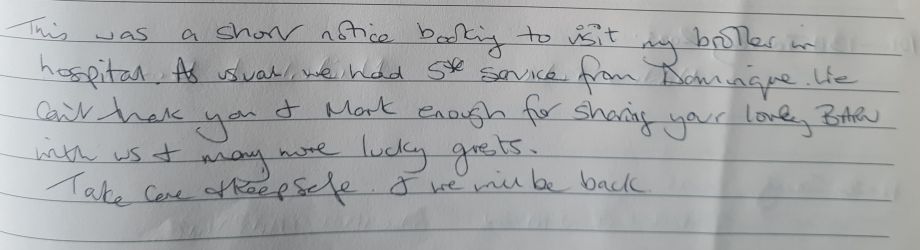 This was a short notice booking to visit my brother in
hospital. As usual, we had 5* service from Dominique. We
can't thank you & Mark enough for sharing your lovely BARN
with us & many more lucky guests.
Take care & Keep Safe. & we will be back.